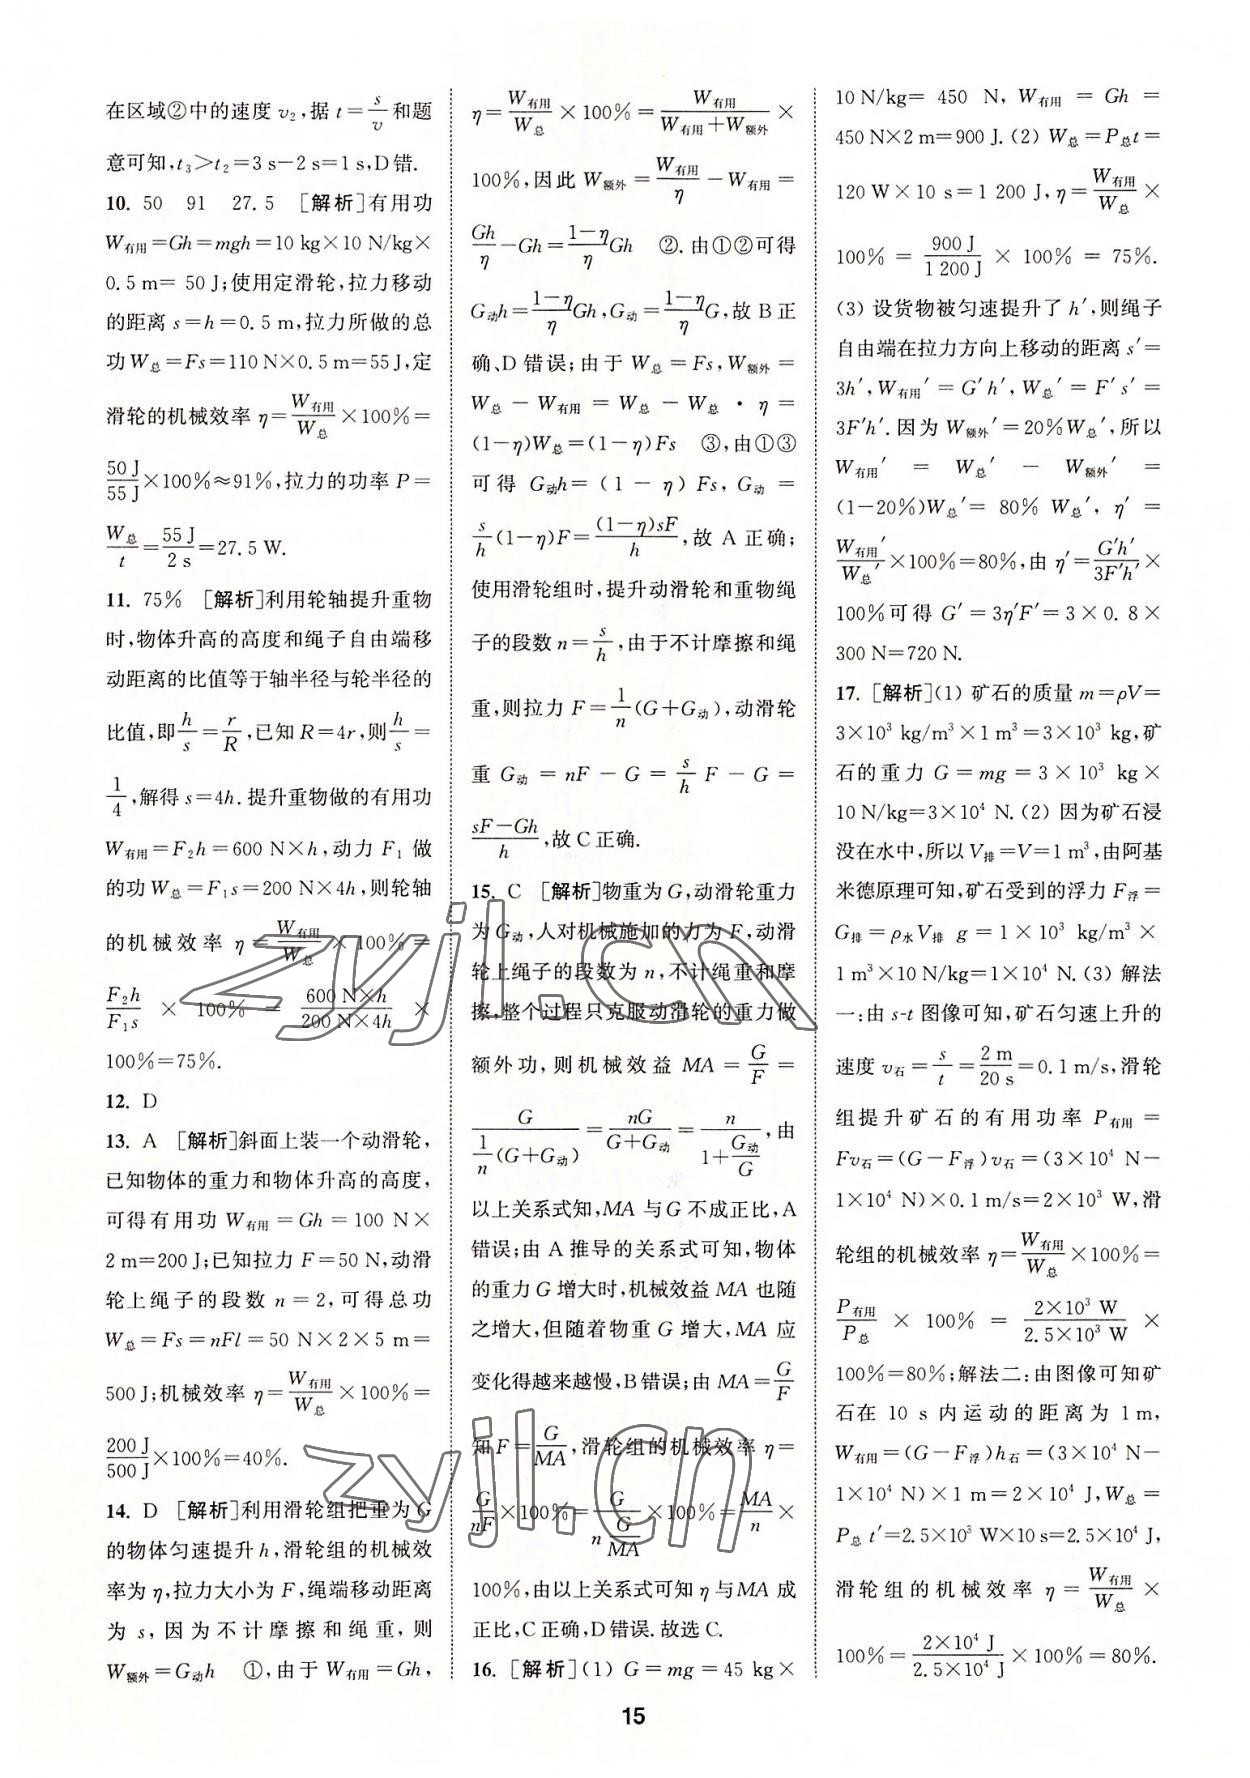 在区域②中的速度 v₂,据 t=s/v 和题
意可知,t₃>t₂=3 s-2 s=1 s,D错.
10. 50 91 27.5 [解析]有用功
W有用=Gh=mgh=10 kg×10 N/kg×
0.5 m= 50 J;使用定滑轮,拉力移动
的距离 s=h=0.5 m,拉力所做的总
功W总=Fs=110 N×0.5 m=55 J,定
滑轮的机械效率 η=W有用/W总×100%=
50 J/55 J×100%≈91%,拉力的功率 P=
W总/t=55 J/2 s=27.5 W.
11. 75% [解析]利用轮轴提升重物
时,物体升高的高度和绳子自由端移
动距离的比值等于轴半径与轮半径的
比值,即h/s=r/R,已知 R=4r,则h/s=
1/4,解得 s=4h.提升重物做的有用功
W有用=F₂h=600 N×h,动力 F₁ 做
的功W总=F₁s=200 N×4h,则轮轴
的机械效率 η=W有用/W总×100%=
F₂h/F₁s × 100% = 600 N×h/200 N×4h ×
100%=75%.
12. D
13. A [解析]斜面上装一个动滑轮,
已知物体的重力和物体升高的高度,
可得有用功 W有用=Gh=100 N×
2 m=200 J;已知拉力 F=50 N,动滑
轮上绳子的段数 n=2,可得总功
W总=Fs=nFl=50 N×2×5 m=
500 J;机械效率 η=W有用/W总×100%=
200 J/500 J×100%=40%.
14. D [解析]利用滑轮组把重为 G
的物体匀速提升 h,滑轮组的机械效
率为 η,拉力大小为 F,绳端移动距离
为 s,因为不计摩擦和绳重,则
W额外=G动h ①,由于 W有用=Gh,
η=W有用/W总×100%=W有用/(W有用+W额外)×
100%,因此 W额外=W有用/η-W有用=
Gh/η-Gh=(1-η)/η Gh ②.由①②可得
G动h=(1-η)/η Gh,G动=(1-η)/η G,故 B 正
确、D 错误;由于 W总=Fs,W额外=
W总-W有用=W总-W总·η=
(1-η)W总=(1-η)Fs ③,由①③
可得 G动h=(1-η)Fs,G动=
s/h(1-η)F=(1-η)sF/h,故 A 正确;
使用滑轮组时,提升动滑轮和重物绳
子的段数 n=s/h,由于不计摩擦和绳
重,则拉力 F=1/n(G+G动),动滑轮
重 G动=nF-G=s/h F-G=
(sF-Gh)/h,故 C 正确.
15. C [解析]物重为 G,动滑轮重力
为 G动,人对机械施加的力为 F,动滑
轮上绳子的段数为 n,不计绳重和摩
擦,整个过程只克服动滑轮的重力做
额外功,则机械效益 MA=G/F=
G/(1/n(G+G动))=nG/(G+G动)=n/(1+G动/G),由
以上关系式知,MA 与 G 不成正比,A
错误;由 A 推导的关系式可知,物体
的重力 G 增大时,机械效益 MA 也随
之增大,但随着物重 G 增大,MA 应
变化得越来越慢,B 错误;由 MA=G/F
知 F=G/MA,滑轮组的机械效率 η=
G/nF×100%=G/(n G/MA)×100%=MA/n×
100%,由以上关系式可知 η 与 MA 成
正比,C 正确,D 错误.故选 C.
16. [解析](1) G=mg=45 kg×
10 N/kg= 450 N,W有用=Gh=
450 N×2 m=900 J.(2) W总=P总t=
120 W×10 s=1 200 J,η=W有用/W总×
100% = 900 J/1 200 J × 100% = 75%.
(3) 设货物被匀速提升了 h′,则绳子
自由端在拉力方向上移动的距离 s′=
3h′,W有用′=G′h′,W总′=F′s′=
3F′h′.因为 W额外′=20%W总′,所以
W有用′ = W总′ - W额外′ =
(1-20%)W总′= 80% W总′,η′=
W有用′/W总′×100%=80%,由 η′=G′h′/3F′h′×
100%可得 G′=3η′F′=3×0.8×
300 N=720 N.
17. [解析](1) 矿石的质量 m=ρV=
3×10³ kg/m³×1 m³=3×10³ kg,矿
石的重力 G=mg=3×10³ kg×
10 N/kg=3×10⁴ N.(2) 因为矿石浸
没在水中,所以 V排=V=1 m³,由阿基
米德原理可知,矿石受到的浮力 F浮=
G排=ρ水V排 g=1×10³ kg/m³×
1 m³×10 N/kg=1×10⁴ N.(3) 解法
一:由 s-t 图像可知,矿石匀速上升的
速度 v石=s/t=2 m/20 s=0.1 m/s,滑轮
组提升矿石的有用功率 P有用=
Fv石=(G-F浮)v石=(3×10⁴ N-
1×10⁴ N)×0.1 m/s=2×10³ W,滑
轮组的机械效率 η=W有用/W总×100%=
P有用/P总 × 100% = 2×10³ W/2.5×10³ W ×
100%=80%;解法二:由图像可知矿
石在 10 s 内运动的距离为 1 m,
W有用=(G-F浮)h石=(3×10⁴ N-
1×10⁴ N)×1 m=2×10⁴ J,W总=
P总 t′=2.5×10³ W×10 s=2.5×10⁴ J,
滑轮组的机械效率 η=W有用/W总×
100%=2×10⁴ J/2.5×10⁴ J×100%=80%.
zyjl.cn
zyjl.cn
15